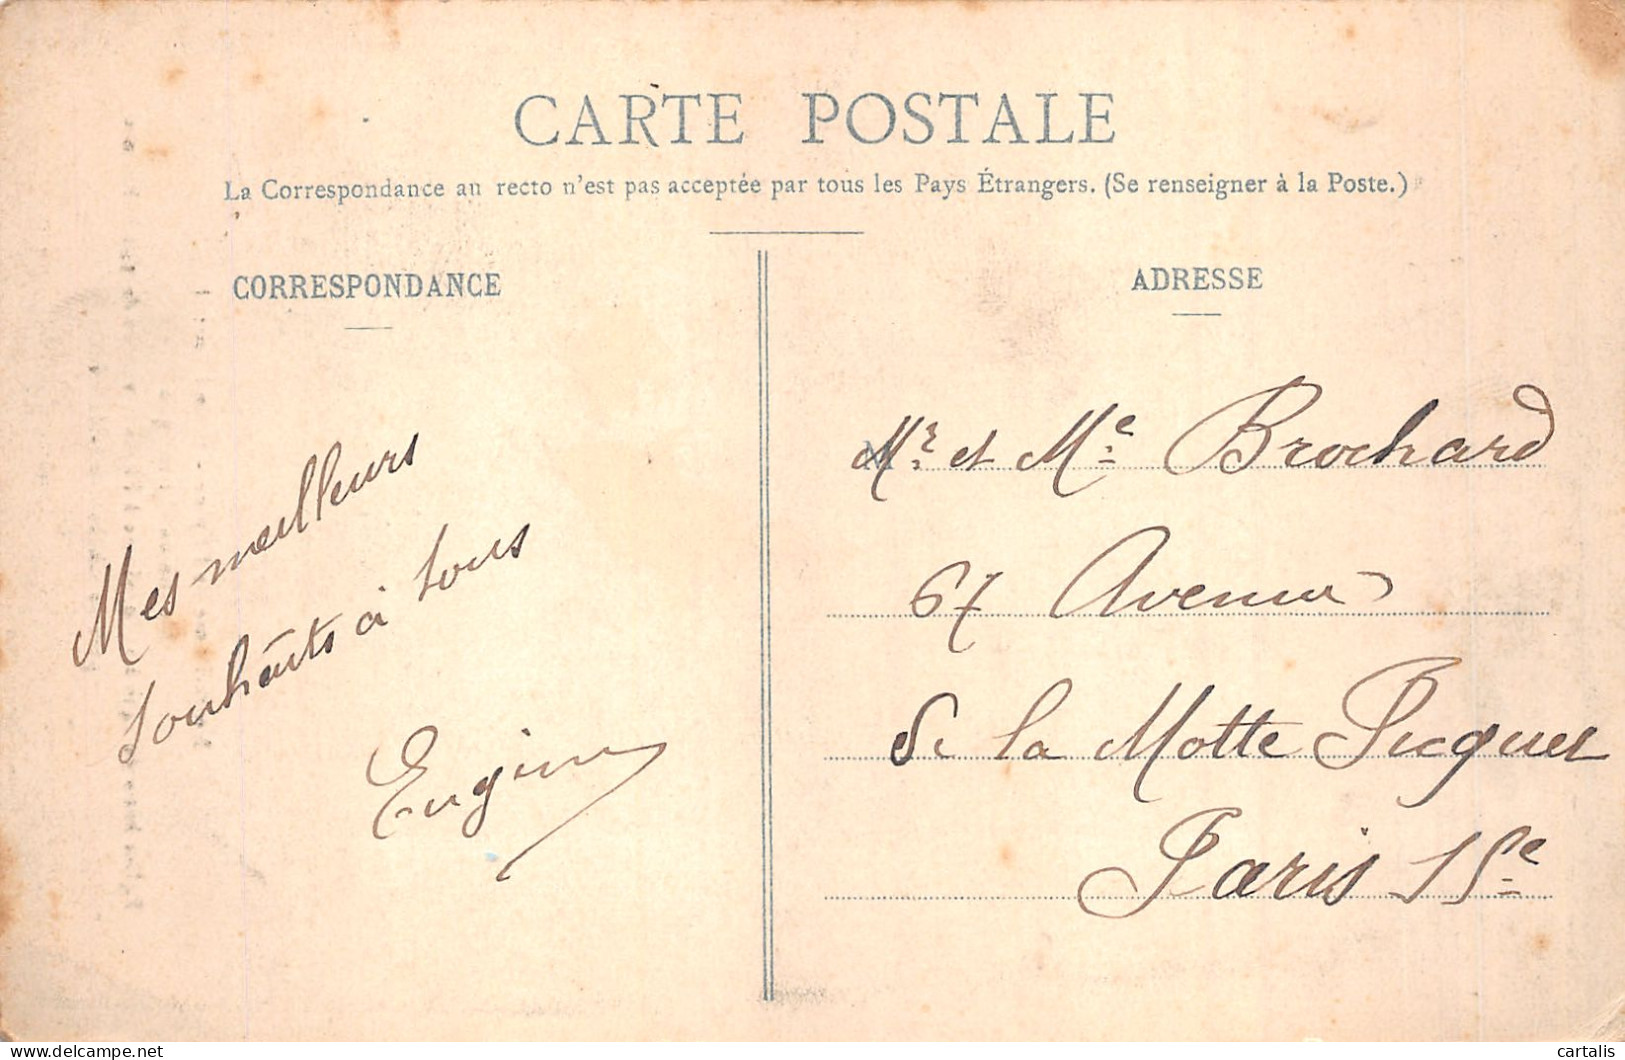 CARTE POSTALE
La Correspondance au recto n'est pas acceptée par tous les Pays Étrangers. (Se renseigner à la Poste.)
CORRESPONDANCE
Mes meilleurs
souhaits à tous
ADRESSE
Mr et Me Brochard
67 Avenue
de la Motte Picquet
Paris 15e
delcampe.net
cartalis